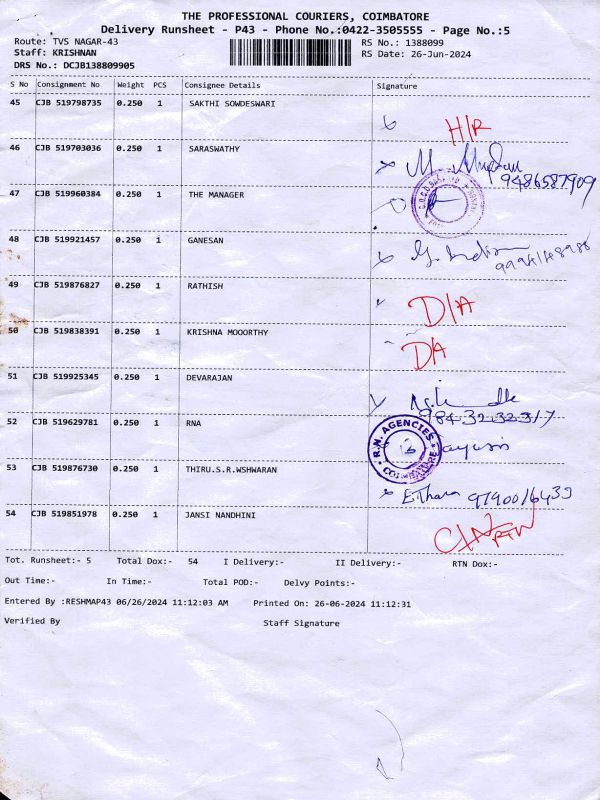 THE PROFESSIONAL COURIERS, COIMBATORE
Delivery Runsheet - P43 - Phone No.:0422-3505555 - Page No.:5
Route: TVS NAGAR-43 RS No.: 1388099
Staff: KRISHNAN RS Date: 26-Jun-2024
DRS No.: DCJB138809905
S No Consignment No Weight PCS Consignee Details Signature
45 CJB 519798735 0.250 1 SAKTHI SOWDESWARI
H/R
46 CJB 519703036 0.250 1 SARASWATHY
9486587909
47 CJB 519960384 0.250 1 THE MANAGER
48 CJB 519921457 0.250 1 GANESAN
49 CJB 519876827 0.250 1 RATHISH
D/A
50 CJB 519838391 0.250 1 KRISHNA MOOORTHY
DA
51 CJB 519925345 0.250 1 DEVARAJAN
52 CJB 519629781 0.250 1 RNA
R.N. AGENCIES
COIMBATORE
53 CJB 519876730 0.250 1 THIRU.S.R.WSHWARAN
54 CJB 519851978 0.250 1 JANSI NANDHINI
RTN
Tot. Runsheet:- 5 Total Dox:- 54 I Delivery:- II Delivery:- RTN Dox:-
Out Time:- In Time:- Total POD:- Delvy Points:-
Entered By :RESHMAP43 06/26/2024 11:12:03 AM Printed On: 26-06-2024 11:12:31
Verified By Staff Signature